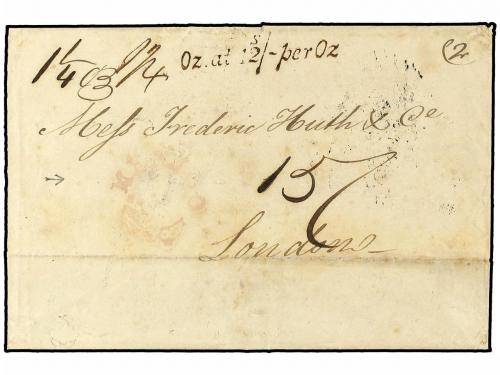 1 1/4 oz Oz. at 12/- per Oz (2
Mess Frederic Huth & Co
15/
London